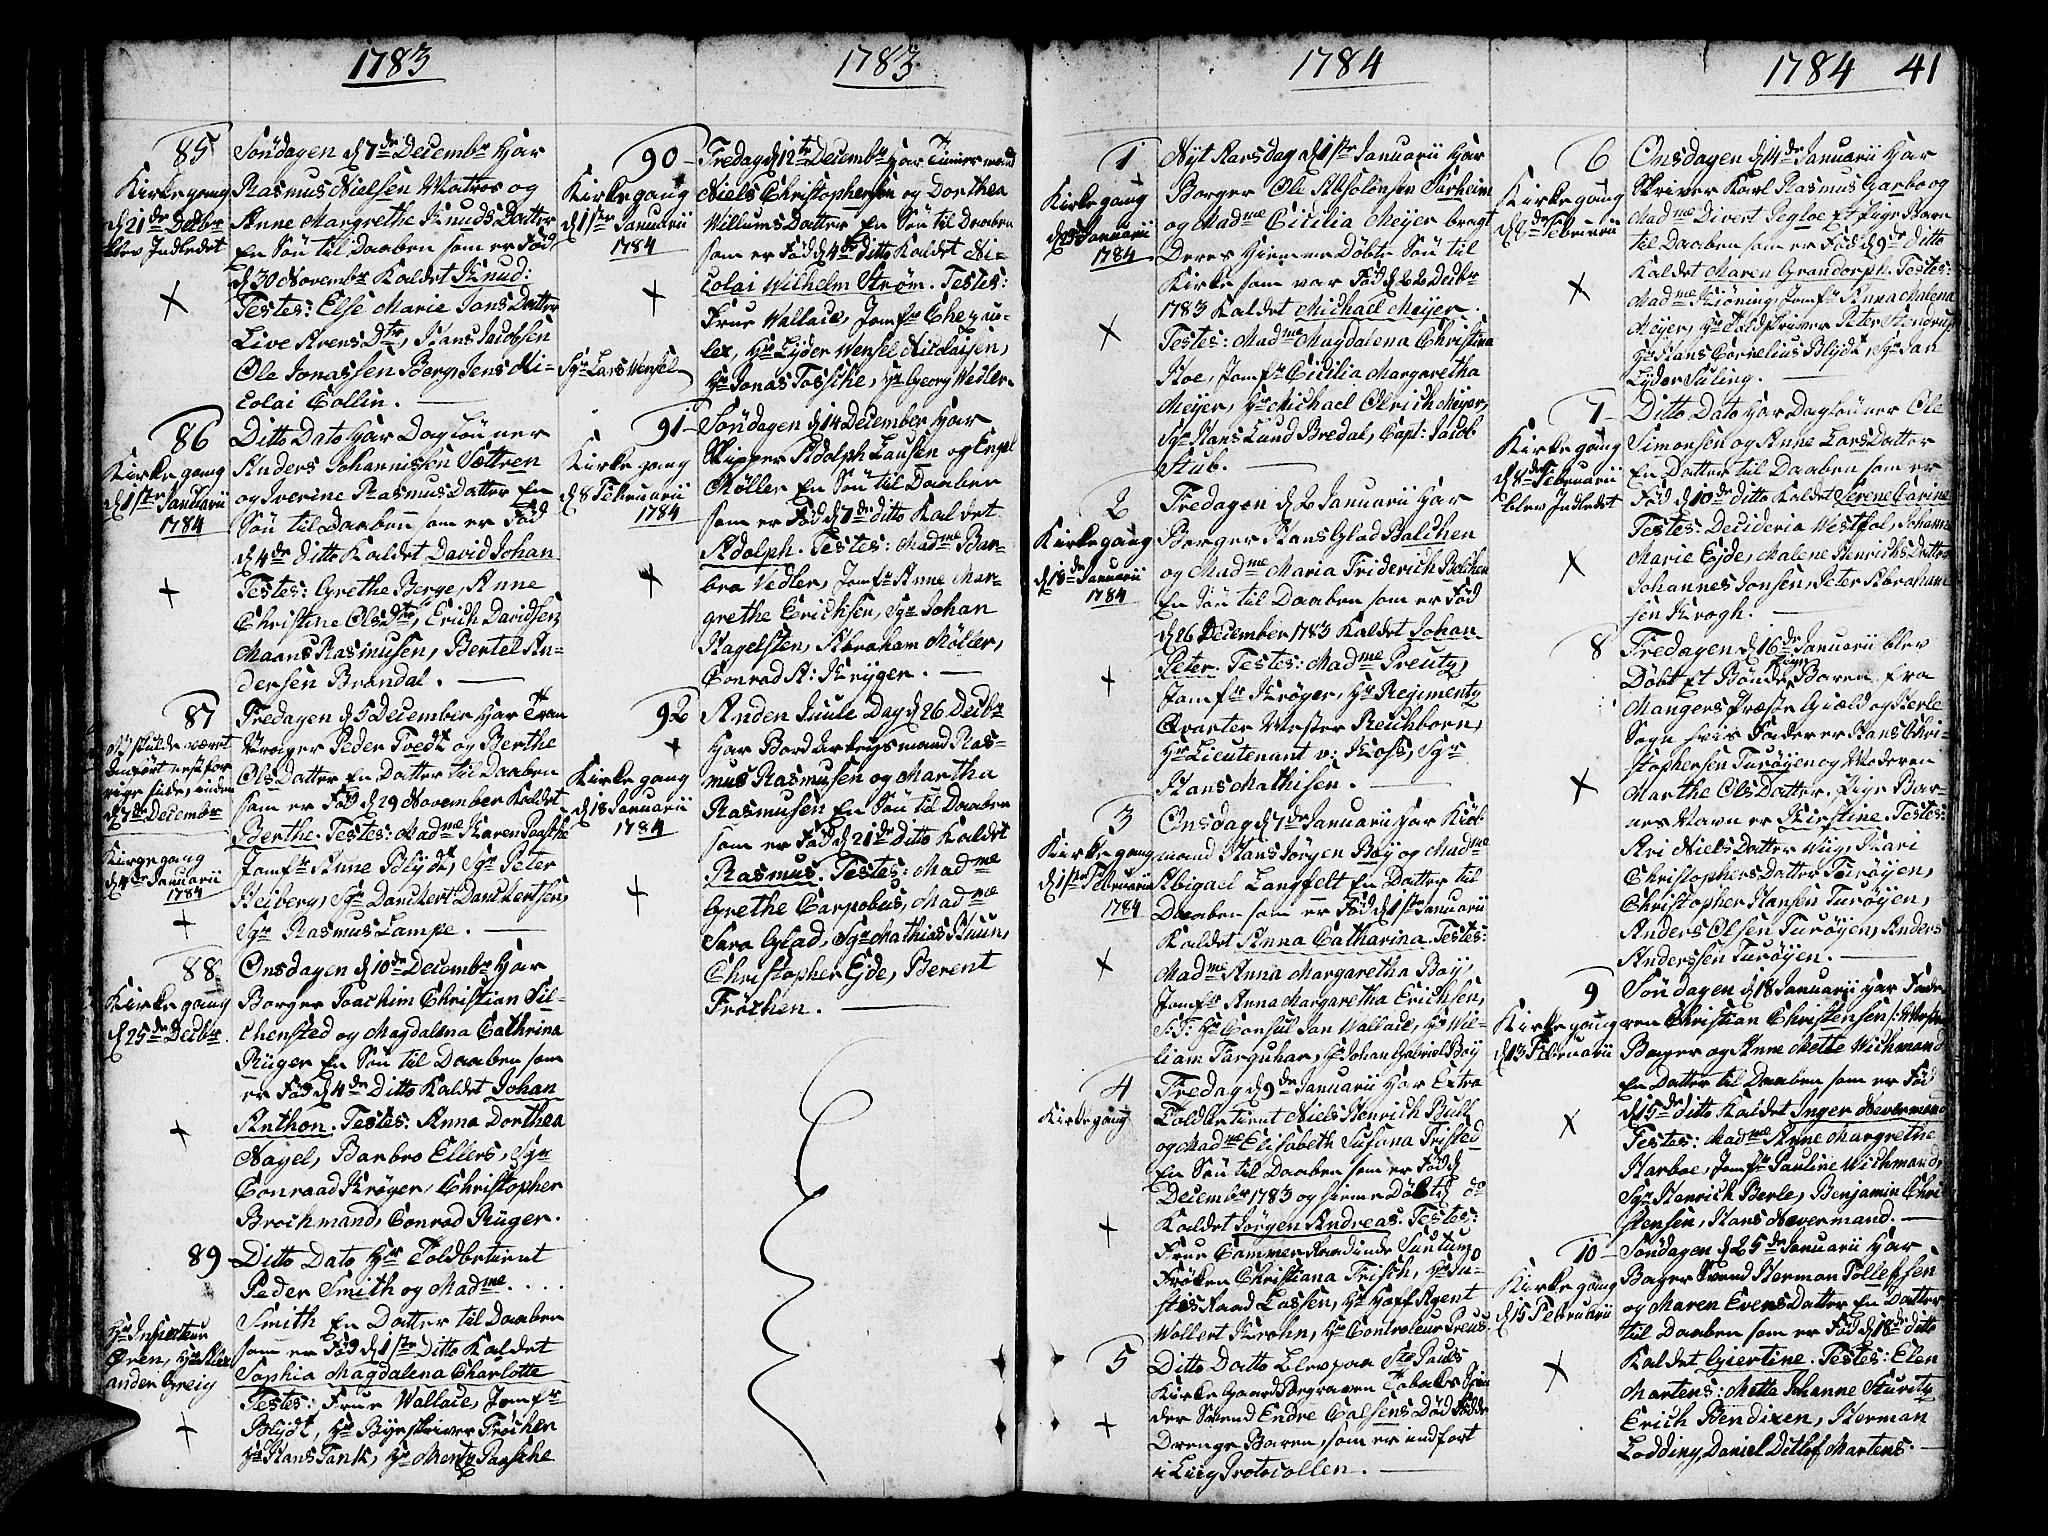 1783
85
Kirkegang
d 21de Decbr
blev Indledet
Søndagen d 7de Decembr Har
Rasmus Nielsen Matros og
Anne Margrethe Knuds Datter
En Søn til Daaben som er Fød
d 30 Novembr Kaldet Knud:
Testes: Else Marie Jans Datter
Live Arens Dtr, Hans Jacobsen
Ole Jonassen Berg, Jens Ni-
colai Collin.
86
Kirkegang
d 1ste Januarii
1784
Ditto Dato Har Dagløuner
Anders Johannissen Søttren
og Iverine Rasmus Datter En
Søn til Daaben som er Fød
d 4de Ditto Kaldet David Johan
Testes: Grethe Berge, Anne
Christine Ols Dtr, Erich Davidsen
Maans Rasmusen, Bertel An-
dersen Brandal.
87
skulde været
Indført nest for
rige side, inden
d 7de Decembr
Kirgegang
d 4de Januarii
1784
Fredagen d 5 December Har Tran
Vrager Peder Tvedt og Berthe
Ols Datter En Datter til Daaben
som er Fød d 29 November Kaldet
Berthe. Testes: Madme Karen Paasche
Jomfr Anne Blydt, Sgr Peter
Heiberg, Sgr Danckert Danckertsen,
Sgr Rasmus Lampe.
88
Kirkegang
d 25de Decbr.
Onsdagen d 10de Decembr Har
Borger Joachim Christian Sil-
chensted og Magdalena Cathrina
Rüger En Søn til Daaben som
er Fød d 4de Ditto Kaldet Johan
Anthon. Testes: Anna Dorthea
Nagel, Barbro Ellers, Sgr
Conraad Krøger, Christopher
Brochmand, Conrad Rüger.
89
Hr Inspecteur
Øren, Hr Alex
ander Greig
Ditto Dato Hr Toldbetient
Peder Smith og Madme....
Smith En Datter til Daaben
som er Fød d 1ste Ditto Kaldet
Sophia Magdalena Charlotte
Testes: Frue Wallace, Jomfr
Blydt, Hr Byeskriver Frøchen
Hr Hans Tank, Hr Mentz Paasche
1783
90
Kirkegang
d 1ste Januarii
1784
Sgr Lars Wensel
Fredag d 12te Decembr Har Timmermand
Niels Christophersen og Dorthea
Willums Datter En Søn til Daaben
som er Fød d 4de Ditto Kaldet Ni-
colai Wilhelm Strøm. Testes:
Frue Wallace, Jomfr Chequi-
lex, Hr Lyder Wensel Nicolaisen,
Hr Jonas Tossche, Hr Georg Vedler
91
Kirkegang
d 8 Februarii
1784
Søndagen d 14 December Har
Skipper Adolph Lausen og Engel
Møller En Søn til Daaben
som er Fød d 7de ditto Kaldet
Adolph. Testes: Madme Bar-
bra Vedler, Jomfr Anne Mar-
grethe Erichsen, Sgr Johan
Hagelsten, Abraham Møller,
Conrad A: Kryger.
92
Kirkegang
d 18 Januarii
1784
Anden Juule Dag d 26 Decbr
Har Bord Arbeysmand Ras-
mus Rasmusen og Martha
Rasmusen En Søn til Daaben
som er Fød d 21de Ditto Kaldet
Rasmus. Testes: Madme
Grethe Carpobus, Madme
Sara Glad, Sgr Mathias Kuun,
Christopher Ejde, Berent
Frøchen.
1784
1
Kirkegang
d 25 Januarii
1784
Nyt Aars Dag d 1ste Januarii Har
Borger Ole Absolonsen Sarheim
og Madme Cicilia Meyer bragt
Deres Hiemme Døbte Søn til
Kirke som var Fød d 22 Decbr
1783 Kaldet Michael Meyer.
Testes: Madme Magdalena Christina
Hoe, Jomfr Cicilia Margaretha
Meyer, Hr Michael Olrich Meyer,
Sgr Hans Lund Bredal, Capt: Jacob
Stub.
2
Kirkegang
d 18de Januarii
1784
Fredagen d 2 Januarii Har
Borger Hans Glad Balchen
og Madme Maria Friderich Balchen
En Søn til Daaben som er Fød
d 26 December 1783 Kaldet Johan
Peter. Testes: Madme Preutz,
Jomfr Krøger, Hr Regimentz
Qvarter Mester Reichborn,
Hr Lieutenant v: Koss, Sgr
Hans Mathisen.
3
Kirkegang
d 1ste Februarii
1784
Onsdag d 7de Januarii Har Kiøb
mand Hans Jørgen Boy og Madme
Abigael Langfelt En Datter til
Daaben som er Fød d 1ste Januarii
Kaldet Anna Catharina. Testes:
Madme Anna Margaretha Boy,
Jomfr Anna Margaretha Erichsen,
S: T: Hr Consul Jan Wallace, Hr Wil-
liam Farquhar, Sr Johan Gabriel Boy
4
Kirkegang
Fredag d 9de Januarii Har Extra
Toldbetient Niels Henrich Bull
og Madme Elisabeth Susana Fristed
En Søn til Daaben som er Fød d
Decembr 1783 og Hieme Døbt d do
Kaldet Jørgen Andreas. Testes:
Frue Cammer Raadinde Suntum
Frøken Christiana Frisch, Hr Ju-
stis Raad Lassen, Hr Hoff Agent
Wollert Krohn, Hr Controleur Preus
5
Ditto Datto blev paa Ste Pauls
Kirke Gaard Begraven Tobaks Spin
der Svend Endre Calsens Død Fødde
Drenge Baren som er indført
i Liig Protocollen.
1784 41
6
Kirkegang
d 8de Februarii
Onsdagen d 14de Januarii Har
Skriver Karl Rasmus Garbo og
Madme Divert Segloe Et Pige Barn
til Daaben som er Fød d 9de Ditto
Kaldet Maren Grandorph. Testes:
Madme Kiøning, Jomfr Anna Malena
Meyer, Hr Toldskriver Peter Hendrup
Hr Hans Cornelius Blydt, Sgr Jan
Lyder Suling.
7
Kirkegang
d 8de Februarii
blev Indledet
Ditto Dato Har Dagløuner Ole
Simonsen og Anne Lars Datter
En Datter til Daaben som er
Fød d 10de ditto Kaldet Serene Carine
Testes: Decideria Westfal, Johanne
Marie Ejde, Malene Henrichs Datter
Johannes Jonsen, Peter Abraham
sen Krogh.
8
Fredagen d 16de Januarii blev
Døbt Et Bønde Pige Baren fra
Mangers Præste Giæld og Herle
Sogn hvis Fader er Hans Chri-
stophersen Turøyen og Moderen
Marthe Ols Datter. Pige Bar-
nes Navn er Kirstine. Testes:
Ari Niels Datter Wiig, Kari
Christophers Datter Turøyen,
Christopher Hansen Turøyen,
Anders Olsen Turøyen, Anders
Anderssen Turøyen.
9
Kirkegang
d 13 Februarii
Søndagen d 18 Januarii Har
ren Christian Christensen
Bager og Anne Mette Wichmand
En Datter til Daaben som er Fød
d 15de ditto Kaldet Inger Nevermand
Testes: Madme Anne Margrethe
Harboe, Jomfr Pauline Wichmand,
Sgr Henrich Berle, Benjamin Chri-
stensen, Hans Nevermand.
10
Kirkegang
d 15 Februarii
Søndagen d 25de Januarii Har
Bager Svend Herman Tollefsen
og Maren Evens Datter En Datter
til Daaben som er Fød d 18de ditto
Kaldet Giertine. Testes: Elen
Martens: Mette Johanne Sturitz
Erich Bendixen, Herman
Lodding, Daniel Ditlof Martens.